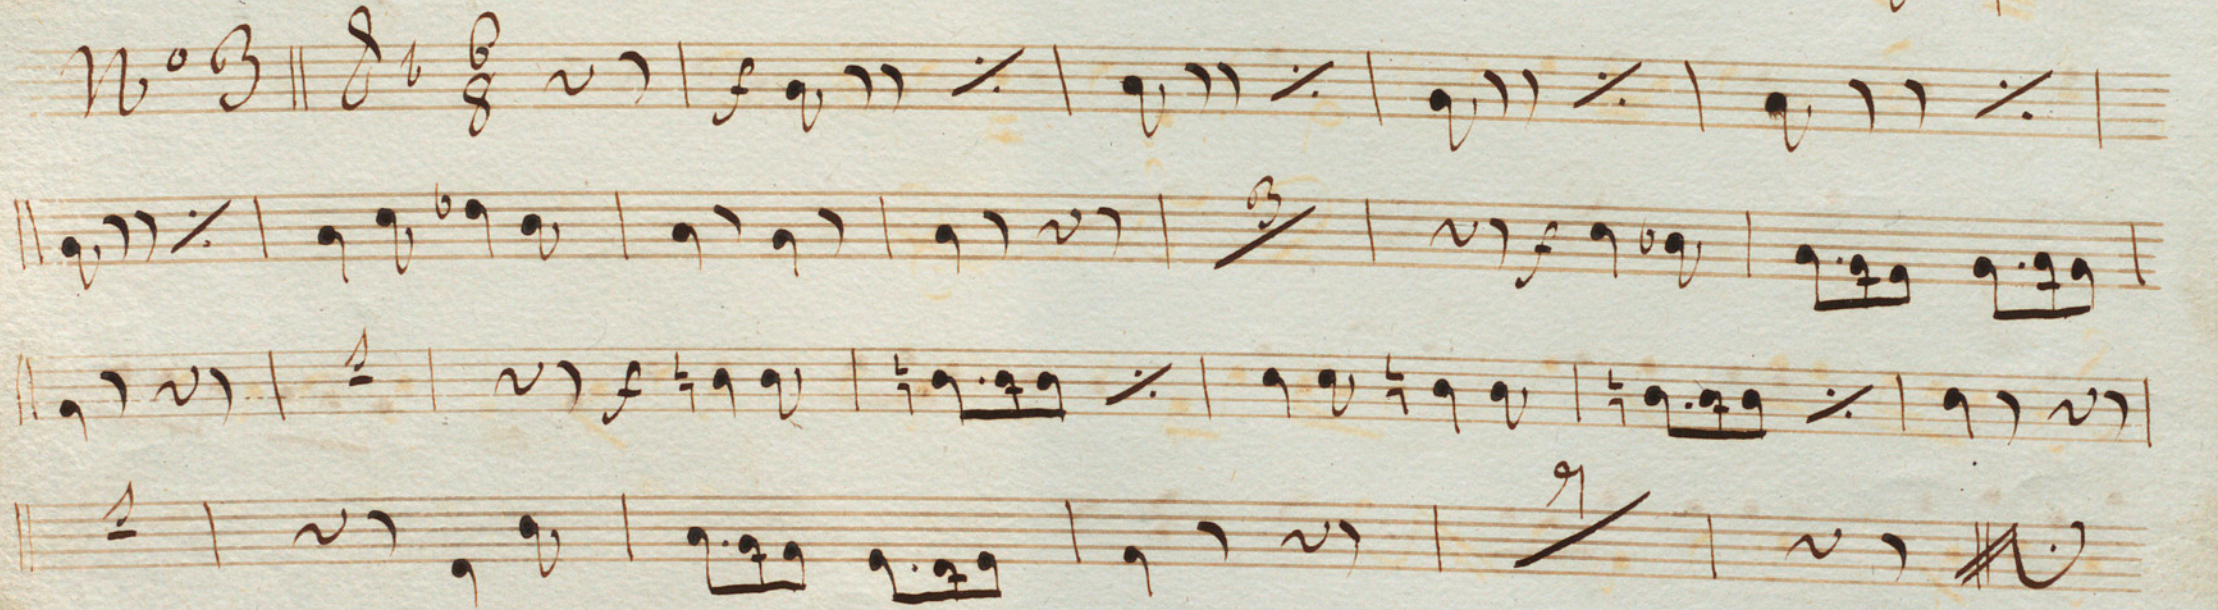 N° 3 6/8 f
3 f
1 f
1 9